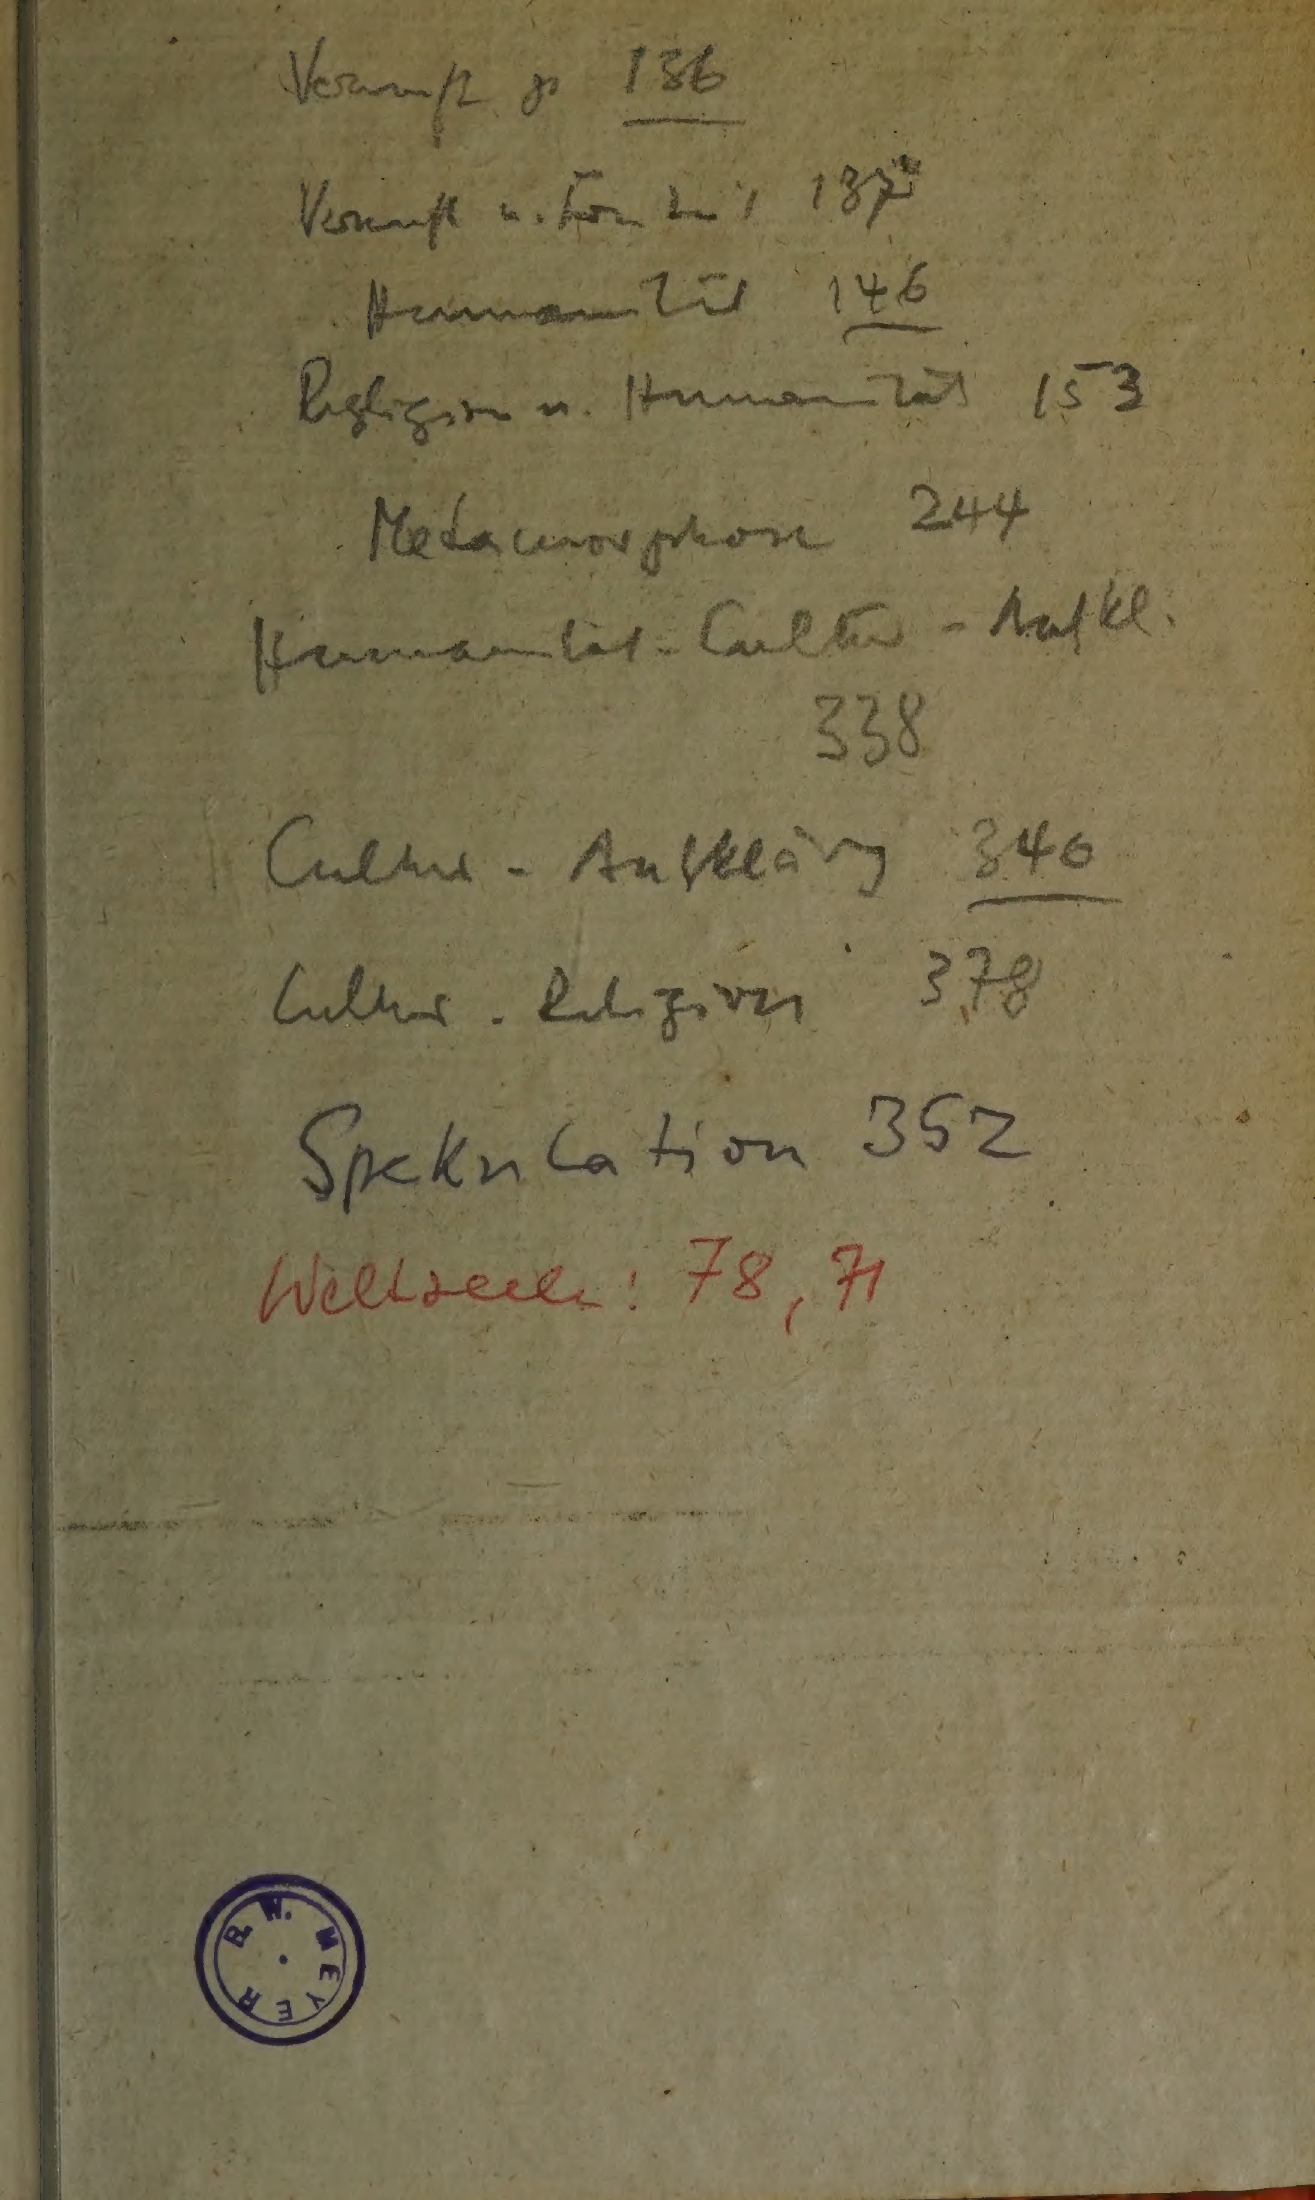 Vernunft p 136
Vernunft u. 137
Humanität 146
Religion u. Humanität 153
Metamorphose 244
Humanität - Cultur - Aufkl.
338
Cultur - Aufklärung 340
Cultur - Religion 378
Spekulation 352
Weltseele: 78, 71
R. W. MEYER